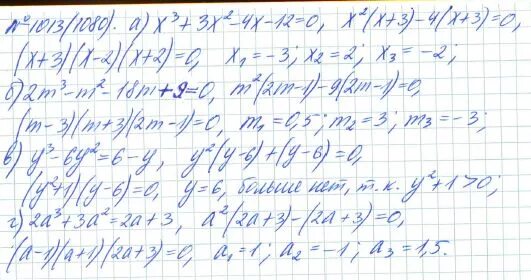 № 1013(1080). а) x³+3x²-4x-12=0, x²(x+3)-4(x+3)=0,
(x+3)(x-2)(x+2)=0, x₁=-3; x₂=2; x₃=-2;
б) 2m³-m²-18m+9=0, m²(2m-1)-9(2m-1)=0,
(m-3)(m+3)(2m-1)=0, m₁=0,5; m₂=3; m₃=-3;
в) y³-6y²=6-y, y²(y-6)+(y-6)=0,
(y²+1)(y-6)=0, y=6, больше нет, т.к. y²+1>0;
г) 2a³+3a²=2a+3, a²(2a+3)-(2a+3)=0,
(a-1)(a+1)(2a+3)=0, a₁=1; a₂=-1; a₃=1,5.